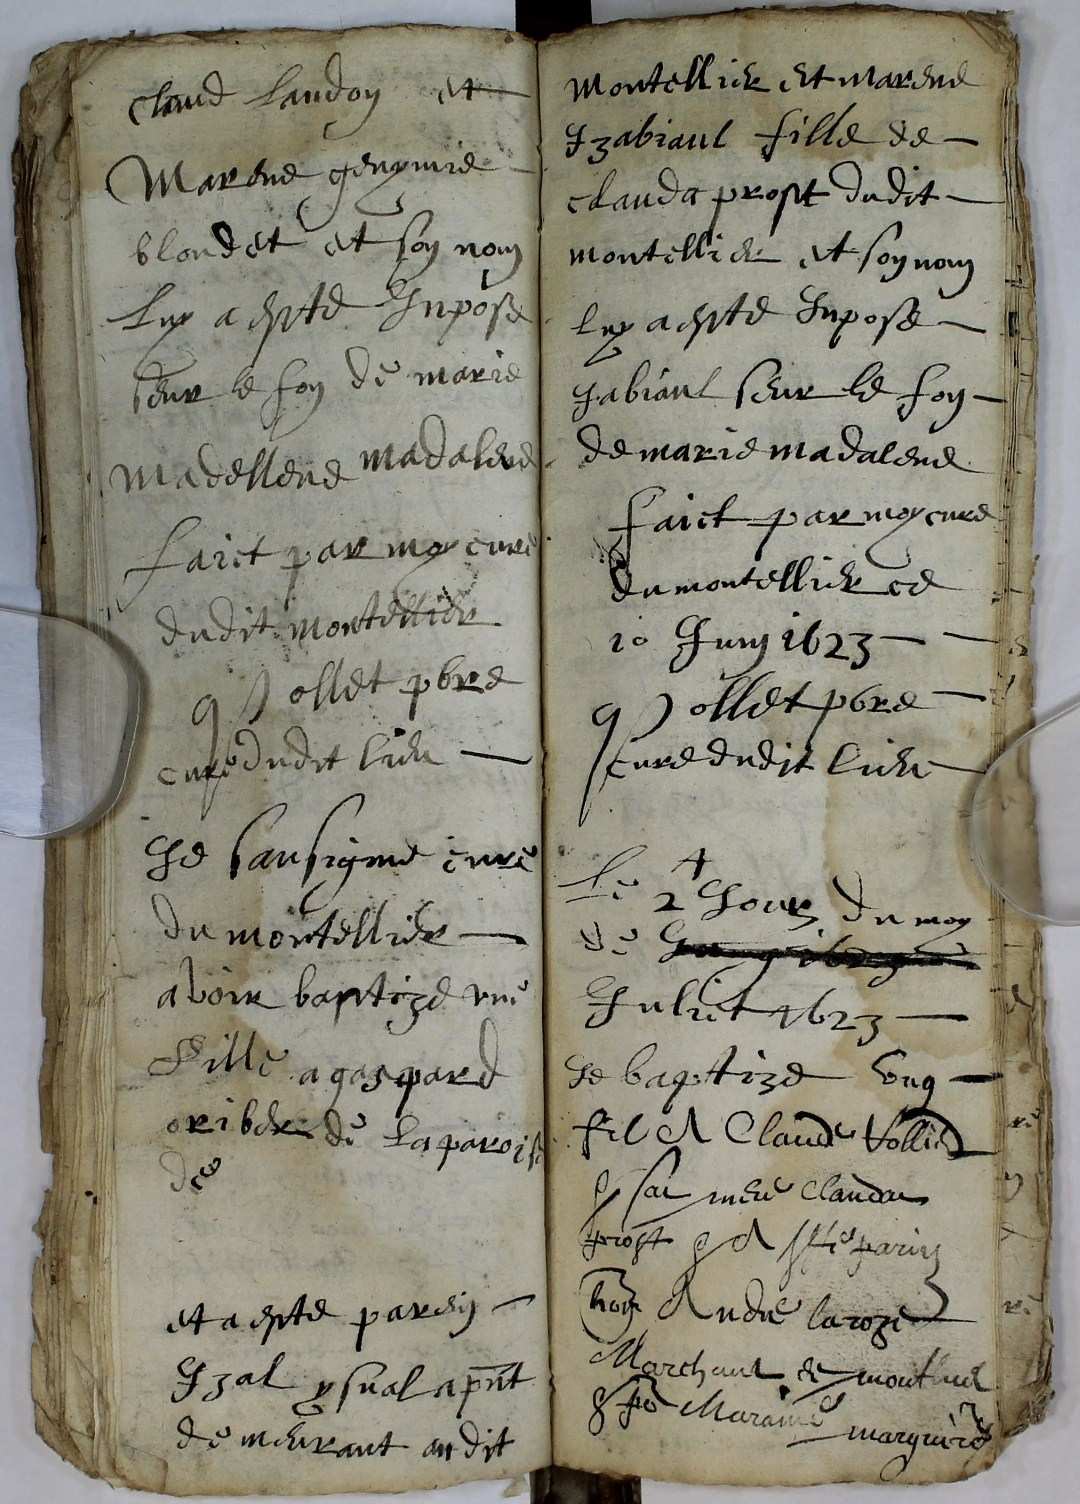 claud landon et
Marene genymie
blondet et son nom
luy a este Inpose
seur le fon de marie
madellene madalene
faict par moy cure
dudit montellier
Pollet pbre
cure dudit lieu
Je sousigne cure
du montellier
avoir baptize une
fille a gaspard
oriber de la parois
de
et a este parein
Izal ysual apnt
demeurant audit
montellier et marene
Izabiaul fille de
clauda prost dudit
montellier et son nom
luy a este Inpose
Jabiaul seur le fon
de marie madalene
faict par moy cure
du montellier ce
10 Juin 1623
Pollet pbre
cure dudit lieu
Le 4
2 Jour du moy
de
Juliet 1623
Je baptize ung
fil A Claude Vollie
sa mere Clauda
prost A parin
hon Andre laroze
Marchant de montluel
Maraine marguerite